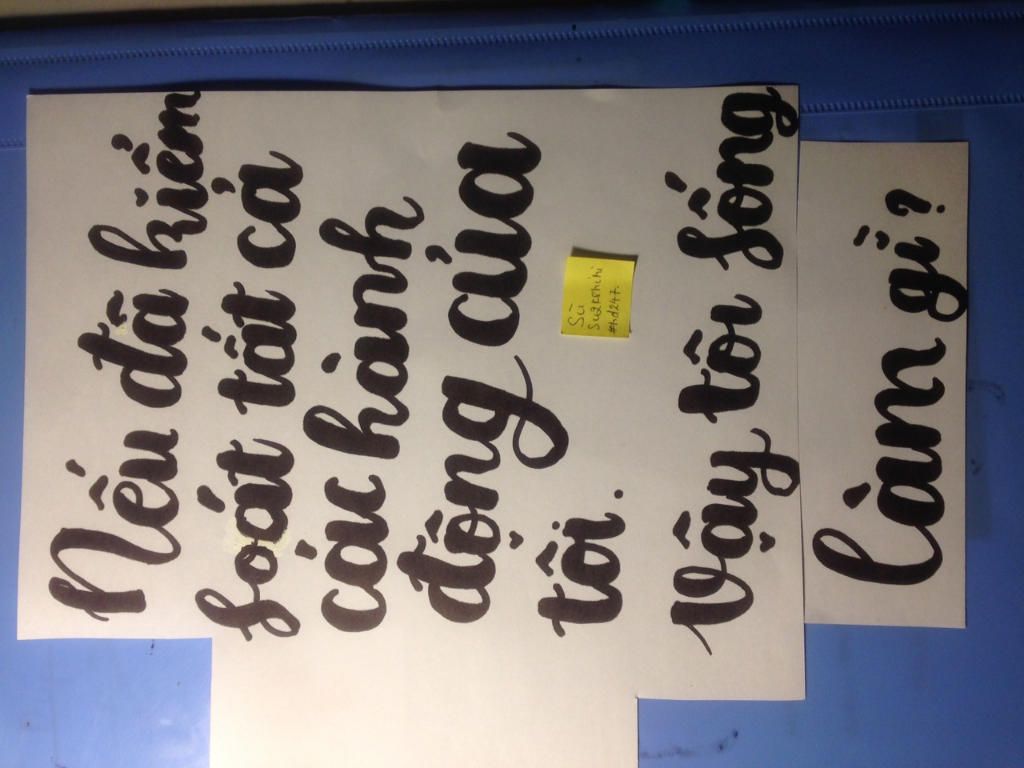 Nếu đã kiểm
soát tất cả
các hành
động của
tôi.
Sù
Su2kshihi
#hd247.
Vậy tôi sống
làm gì?